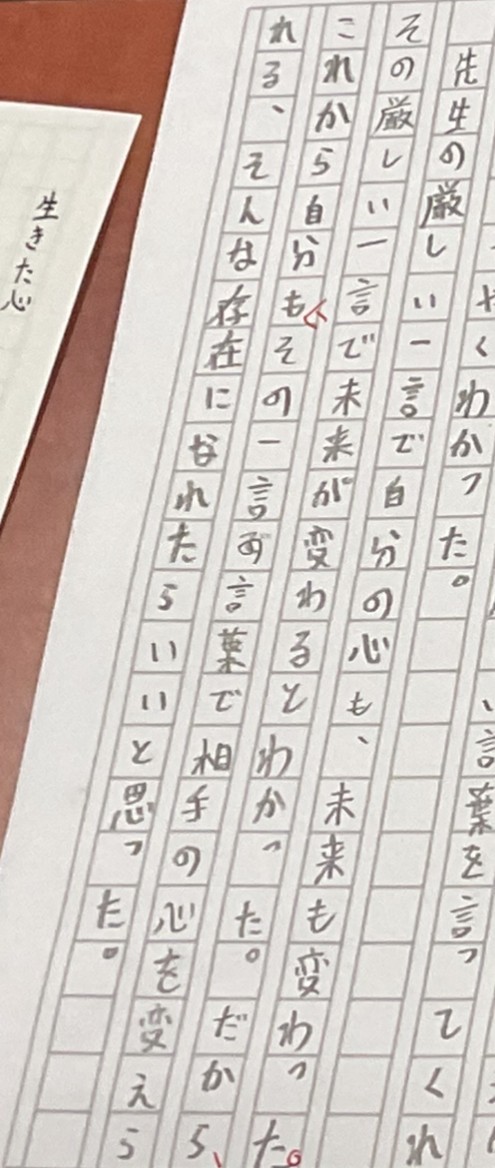 言葉を言ってくれ
くわかった。
先生の厳しい一言で自分の心も、未来も変わった。
その厳しい一言で未来が変わるとわかった。だから、
これから自分もその一言 言葉で相手の心を変えら
れる、そんな存在になれたらいいと思った。
生きた心